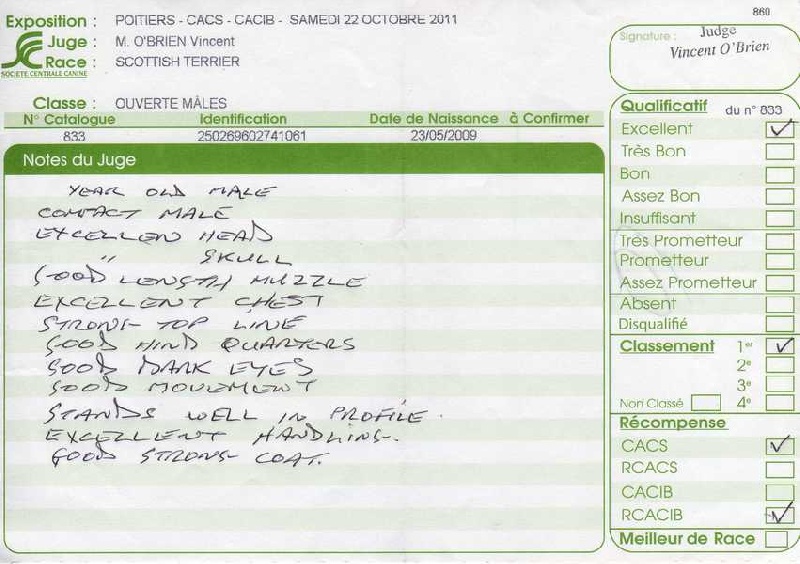 860
Exposition : POITIERS - CACS - CACIB - SAMEDI 22 OCTOBRE 2011
Juge : M. O'BRIEN Vincent
Race : SCOTTISH TERRIER
SOCIETE CENTRALE CANINE
Classe : OUVERTE MÂLES
N° Catalogue Identification Date de Naissance à Confirmer
833 250269602741061 23/05/2009
Notes du Juge
YEAR OLD MALE
COMPACT MALE
EXCELLEN HEAD
" SKULL
GOOD LENGTH MUZZLE
EXCELLENT CHEST
STRONG TOP LINE
GOOD HIND QUARTERS
GOOD DARK EYES
GOOD MOVEMENT
STANDS WELL IN PROFILE.
EXCELLENT HANDLING.
GOOD STRONG COAT.
Signature : Judge
Vincent O'Brien
Qualificatif du n° 833
Excellent ✓
Très Bon
Bon
Assez Bon
Insuffisant
Très Prometteur
Prometteur
Assez Prometteur
Absent
Disqualifié
Classement 1er ✓
2e
3e
Non Classé 4e
Récompense
CACS ✓
RCACS
CACIB
RCACIB ✓
Meilleur de Race